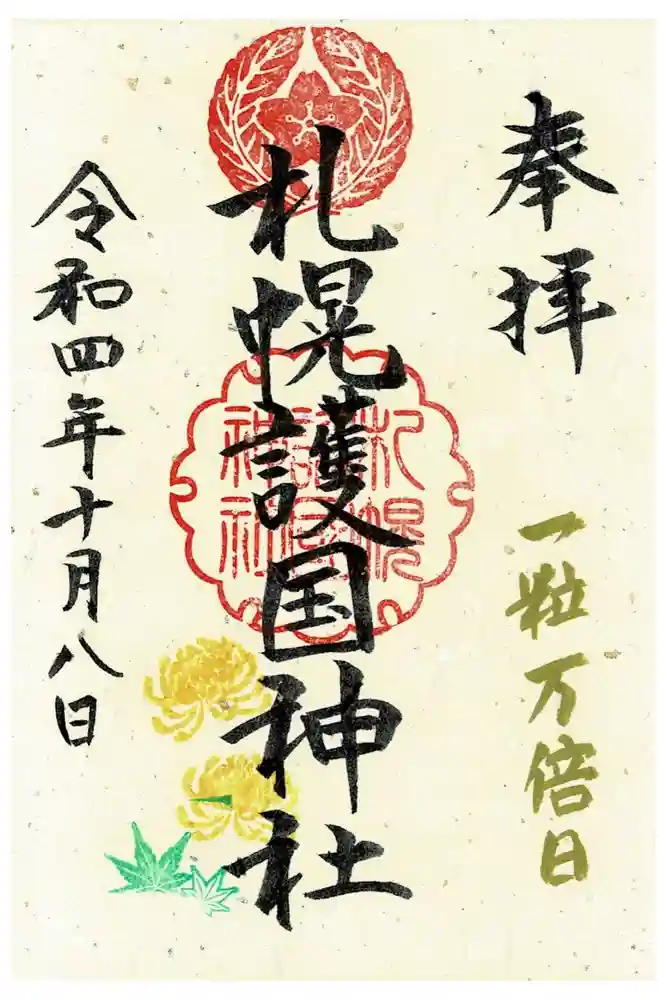 奉拝
一粒万倍日
札幌護国神社
札幌
護国
神社
令和四年十月八日